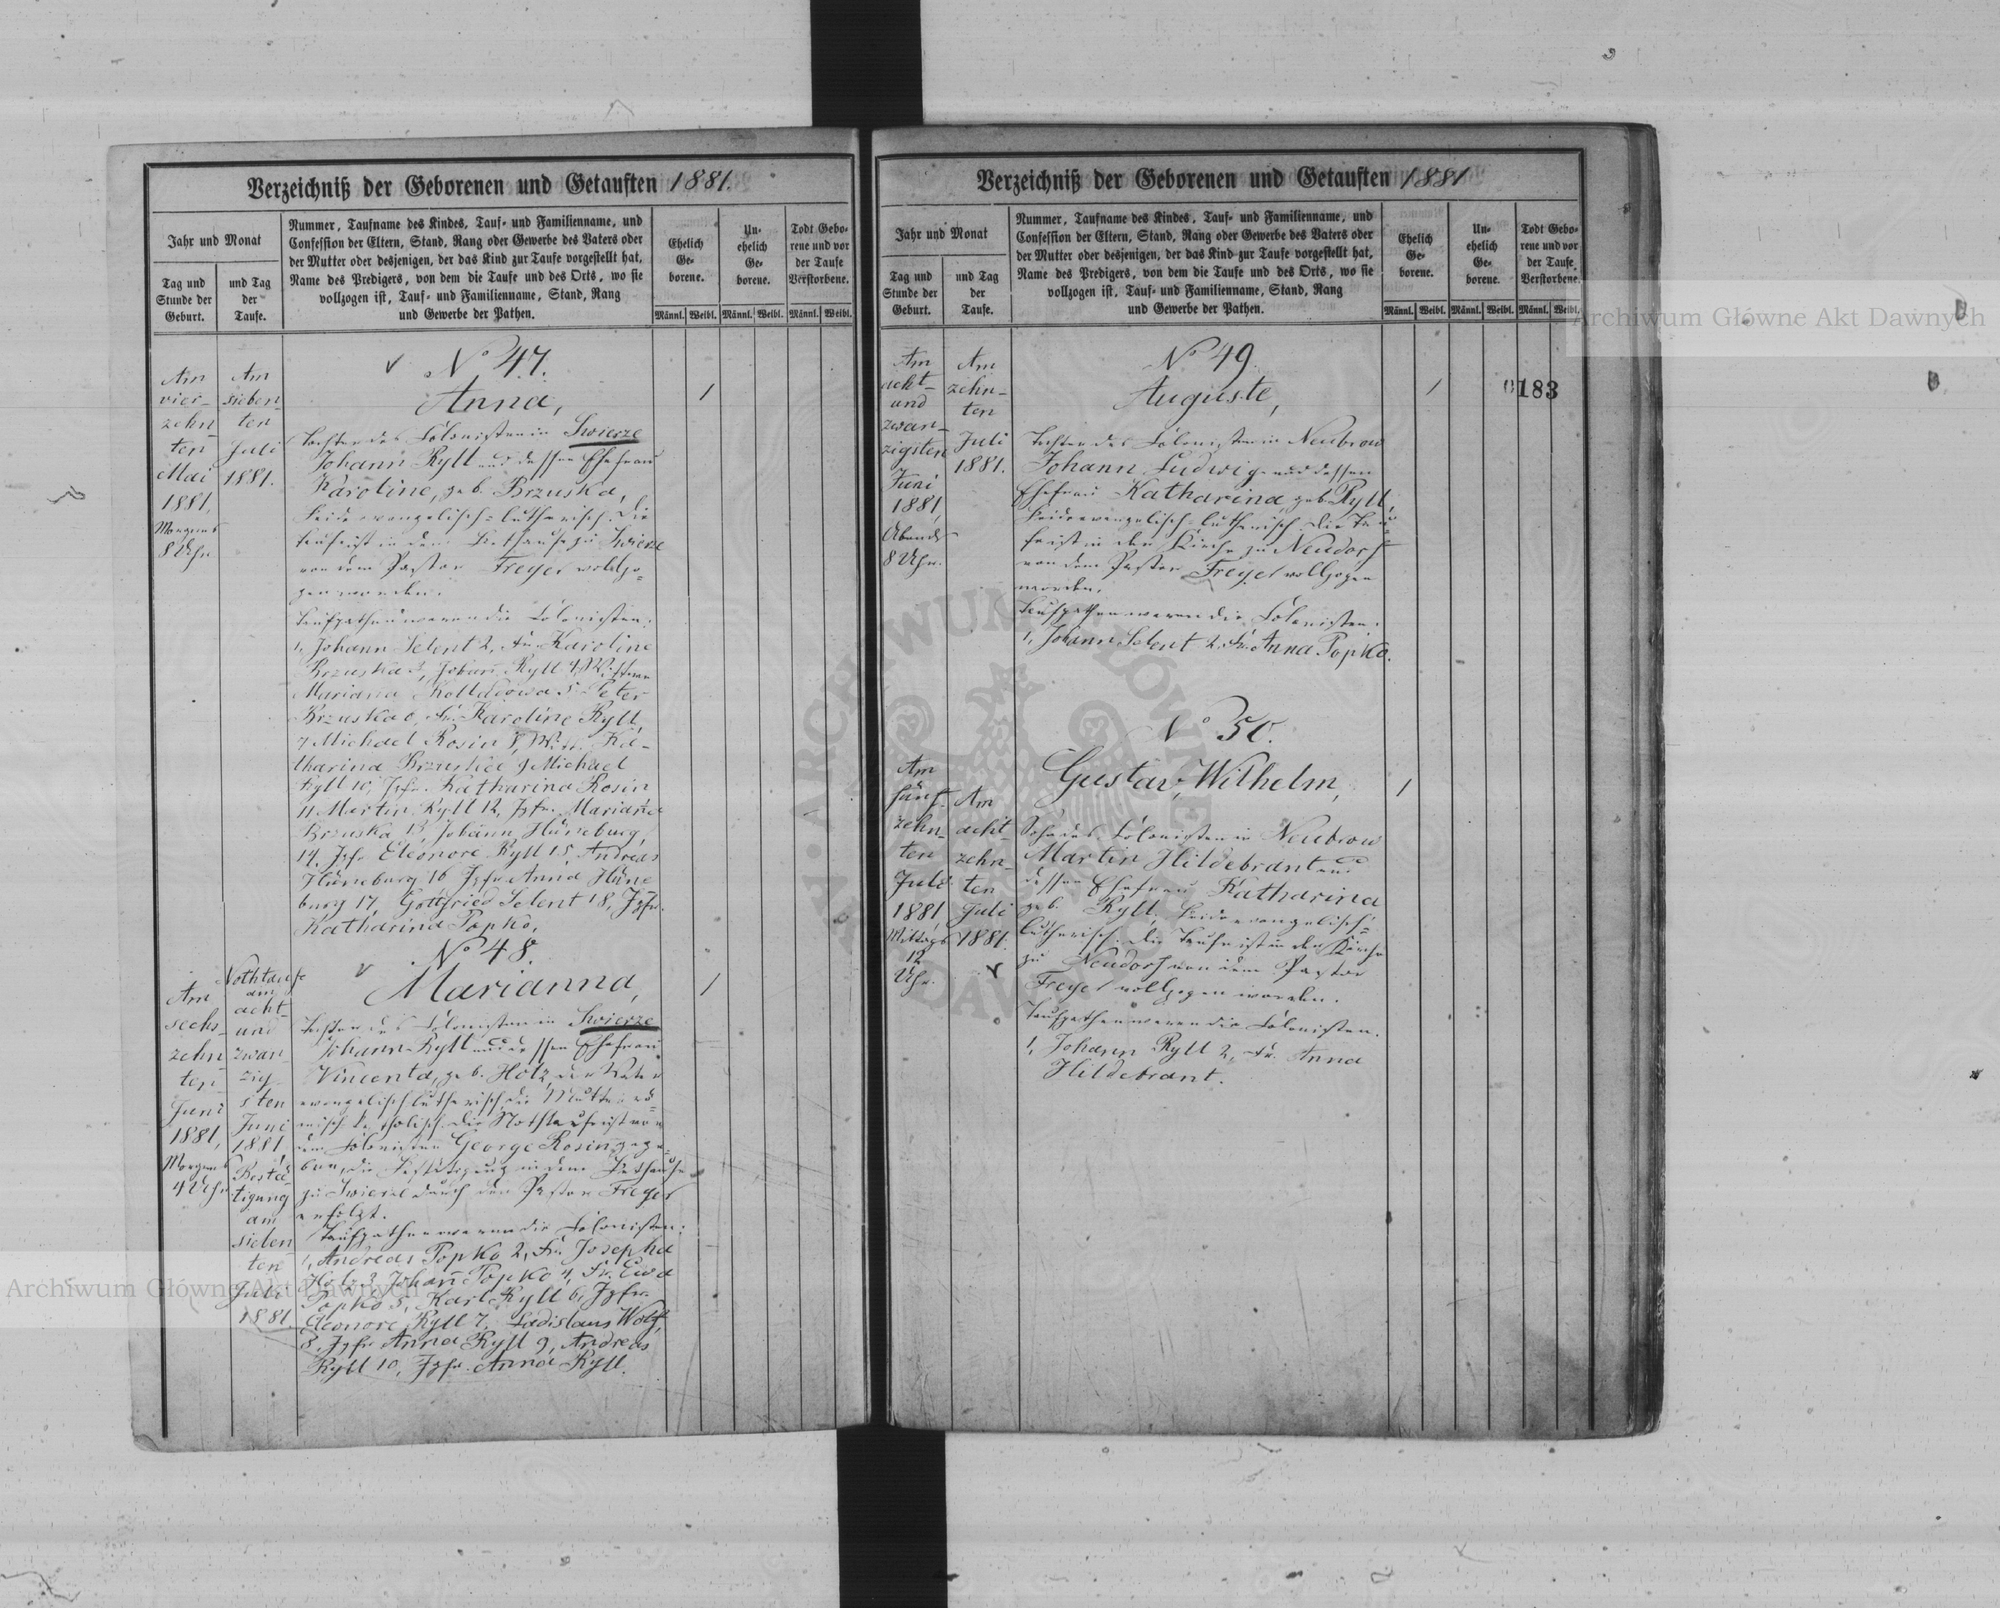 Verzeichniß der Geborenen und Getauften 1881.
Jahr und Monat
Tag und Stunde der Geburt.
und Tag der Taufe.
Nummer, Taufname des Kindes, Tauf- und Familienname, und
Confession der Eltern, Stand, Rang oder Gewerbe des Vaters oder
der Mutter oder desjenigen, der das Kind zur Taufe vorgestellt hat,
Name des Predigers, von dem die Taufe und des Orts, wo sie
vollzogen ist, Tauf- und Familienname, Stand, Rang
und Gewerbe der Pathen.
Ehelich Geborene.
Unehelich Geborene.
Todt Geborene und vor der Taufe Verstorbene.
Männl. Weibl. Männl. Weibl. Männl. Weibl.
Am
vier-
zehn
ten
Mai
1881,
Morgens
8 Uhr.
Am
sieben-
ten
Juli
1881.
No 47.
Anna,
1
Tochter des Colonisten in Swierze
Johann Ryll und dessen Ehefrau
Karoline, geb. Brzuska,
beide evangelisch-lutherisch. Die
Taufe ist in dem Bethause zu Swierze
von dem Pastor Freyer vollzo-
gen worden.
Taufpathen waren die Colonisten:
1, Johann Selent 2, Fr. Karoline
Brzuska 3, Johann Ryll 4, Wittwe
Mariana 5 Peter
Brzuska 6, Fr. Karoline Ryll,
7 Michael Rosin 8, Wit. Ka-
tharina Brzuska 9 Michael
Ryll 10, Jgfr. Katharina Rosin
11 Martin Ryll 12, Jgfr. Mariana
Brzuska 13, Johann Hüneburg,
14, Jgfr Eleonore Ryll 15, Andreas
Hüneburg 16 Jgfr Anna Hüne
burg 17, Gottfried Selent 18, Jgfr.
Katharina Popko.
Am
sechs-
zehn
ten
Juni
1881,
Morgens
4 Uhr
Nothtaufe
am
acht-
und
zwan
zig-
sten
Juni
1881,
Bestä-
tigung
am
sieben
ten
Juli
1881.
No 48.
Marianna,
1
Tochter des Colonisten in Swierze
Johann Ryll und dessen Ehefrau
Vincenta, geb. Holz, der Vater
evangelisch lutherisch, die Mutter rö-
misch katholisch. Die Nothtaufe ist von
dem Colonisten George Rosin gege-
ben, die Bestätigung in dem Bethause
zu Swierze durch den Pastor Freyer
erfolgt.
Taufpathen waren die Colonisten:
1, Andreas Popko 2, Fr. Josepha
Holz 3, Johann Popko 4, Fr. Ewa
Popko 5, Karl Ryll 6, Jgfr.
Eleonore Ryll 7, Ladislaus Wolf,
8, Jgfr Anna Ryll 9, Andreas
Ryll 10, Jgfr. Anna Ryll.
Verzeichniß der Geborenen und Getauften 1881
Jahr und Monat
Tag und Stunde der Geburt.
und Tag der Taufe.
Nummer, Taufname des Kindes, Tauf- und Familienname, und
Confession der Eltern, Stand, Rang oder Gewerbe des Vaters oder
der Mutter oder desjenigen, der das Kind zur Taufe vorgestellt hat,
Name des Predigers, von dem die Taufe und des Orts, wo sie
vollzogen ist, Tauf- und Familienname, Stand, Rang
und Gewerbe der Pathen.
Ehelich Geborene.
Unehelich Geborene.
Todt Geborene und vor der Taufe Verstorbene.
Männl. Weibl. Männl. Weibl. Männl. Weibl.
183
Am
acht-
und
zwan-
zigsten
Juni
1881,
Abends
8 Uhr.
Am
zehn-
ten
Juli
1881.
No 49.
Auguste,
1
Tochter des Colonisten in Neubrow
Johann Ludwig und dessen
Ehefrau Katharina, geb. Ryll,
beide evangelisch-lutherisch. Die Tau-
fe ist in der Kirche zu Neudorf
von dem Pastor Freyer vollzogen
worden.
Taufpathen waren die Colonisten:
1, Johann Selent 2, Fr. Anna Popko.
Am
fünf-
zehn-
ten
Juli
1881
Mittags
12
Uhr.
Am
acht-
zehn
ten
Juli
1881.
No 50.
Gustav, Wilhelm,
1
Sohn des Colonisten in Neubrow
Martin Hildebrant und
dessen Ehefrau Katharina
geb. Ryll, beide evangelisch-
lutherisch. Die Taufe ist in der Kirche
zu Neudorf von dem Pastor
Freyer vollzogen worden.
Taufpathen waren die Colonisten.
1, Johann Ryll 2, Fr. Anna
Hildebrant.
Archiwum Główne Akt Dawnych
Archiwum Główne Akt Dawnych